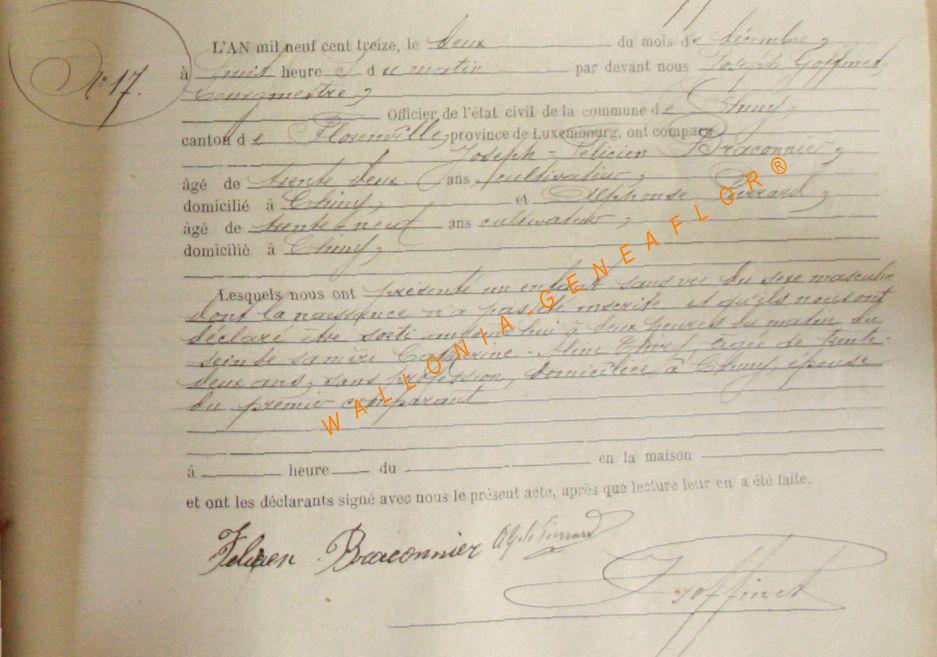 N° 17.
L'AN mil neuf cent treize, le deux du mois de décembre,
à huit heures du matin par devant nous Joseph Goffinet,
bourgmestre,
Officier de l'état civil de la commune de Chiny,
canton de Florenville, province de Luxembourg, ont comparu
Joseph-Félicien Braconnier,
âgé de trente deux ans, cultivateur,
domicilié à Chiny, et Alphonse
âgé de trente neuf ans cultivateur,
domicilié à Chiny,
Lesquels nous ont présenté un enfant sans vie du sexe masculin
dont la naissance n'a pas été inscrite et qu'ils nous ont
déclaré être sorti aujourd'hui à deux heures du matin du
sein de sa mère Catherine-Aline âgée de trente-
deux ans, sans profession, domiciliée à Chiny, épouse
du premier comparant
à heure du en la maison
et ont les déclarants signé avec nous le présent acte, après que lecture leur en a été faite.
Félicien Braconnier
J Goffinet
WALLONIA.GENEAFLOR®